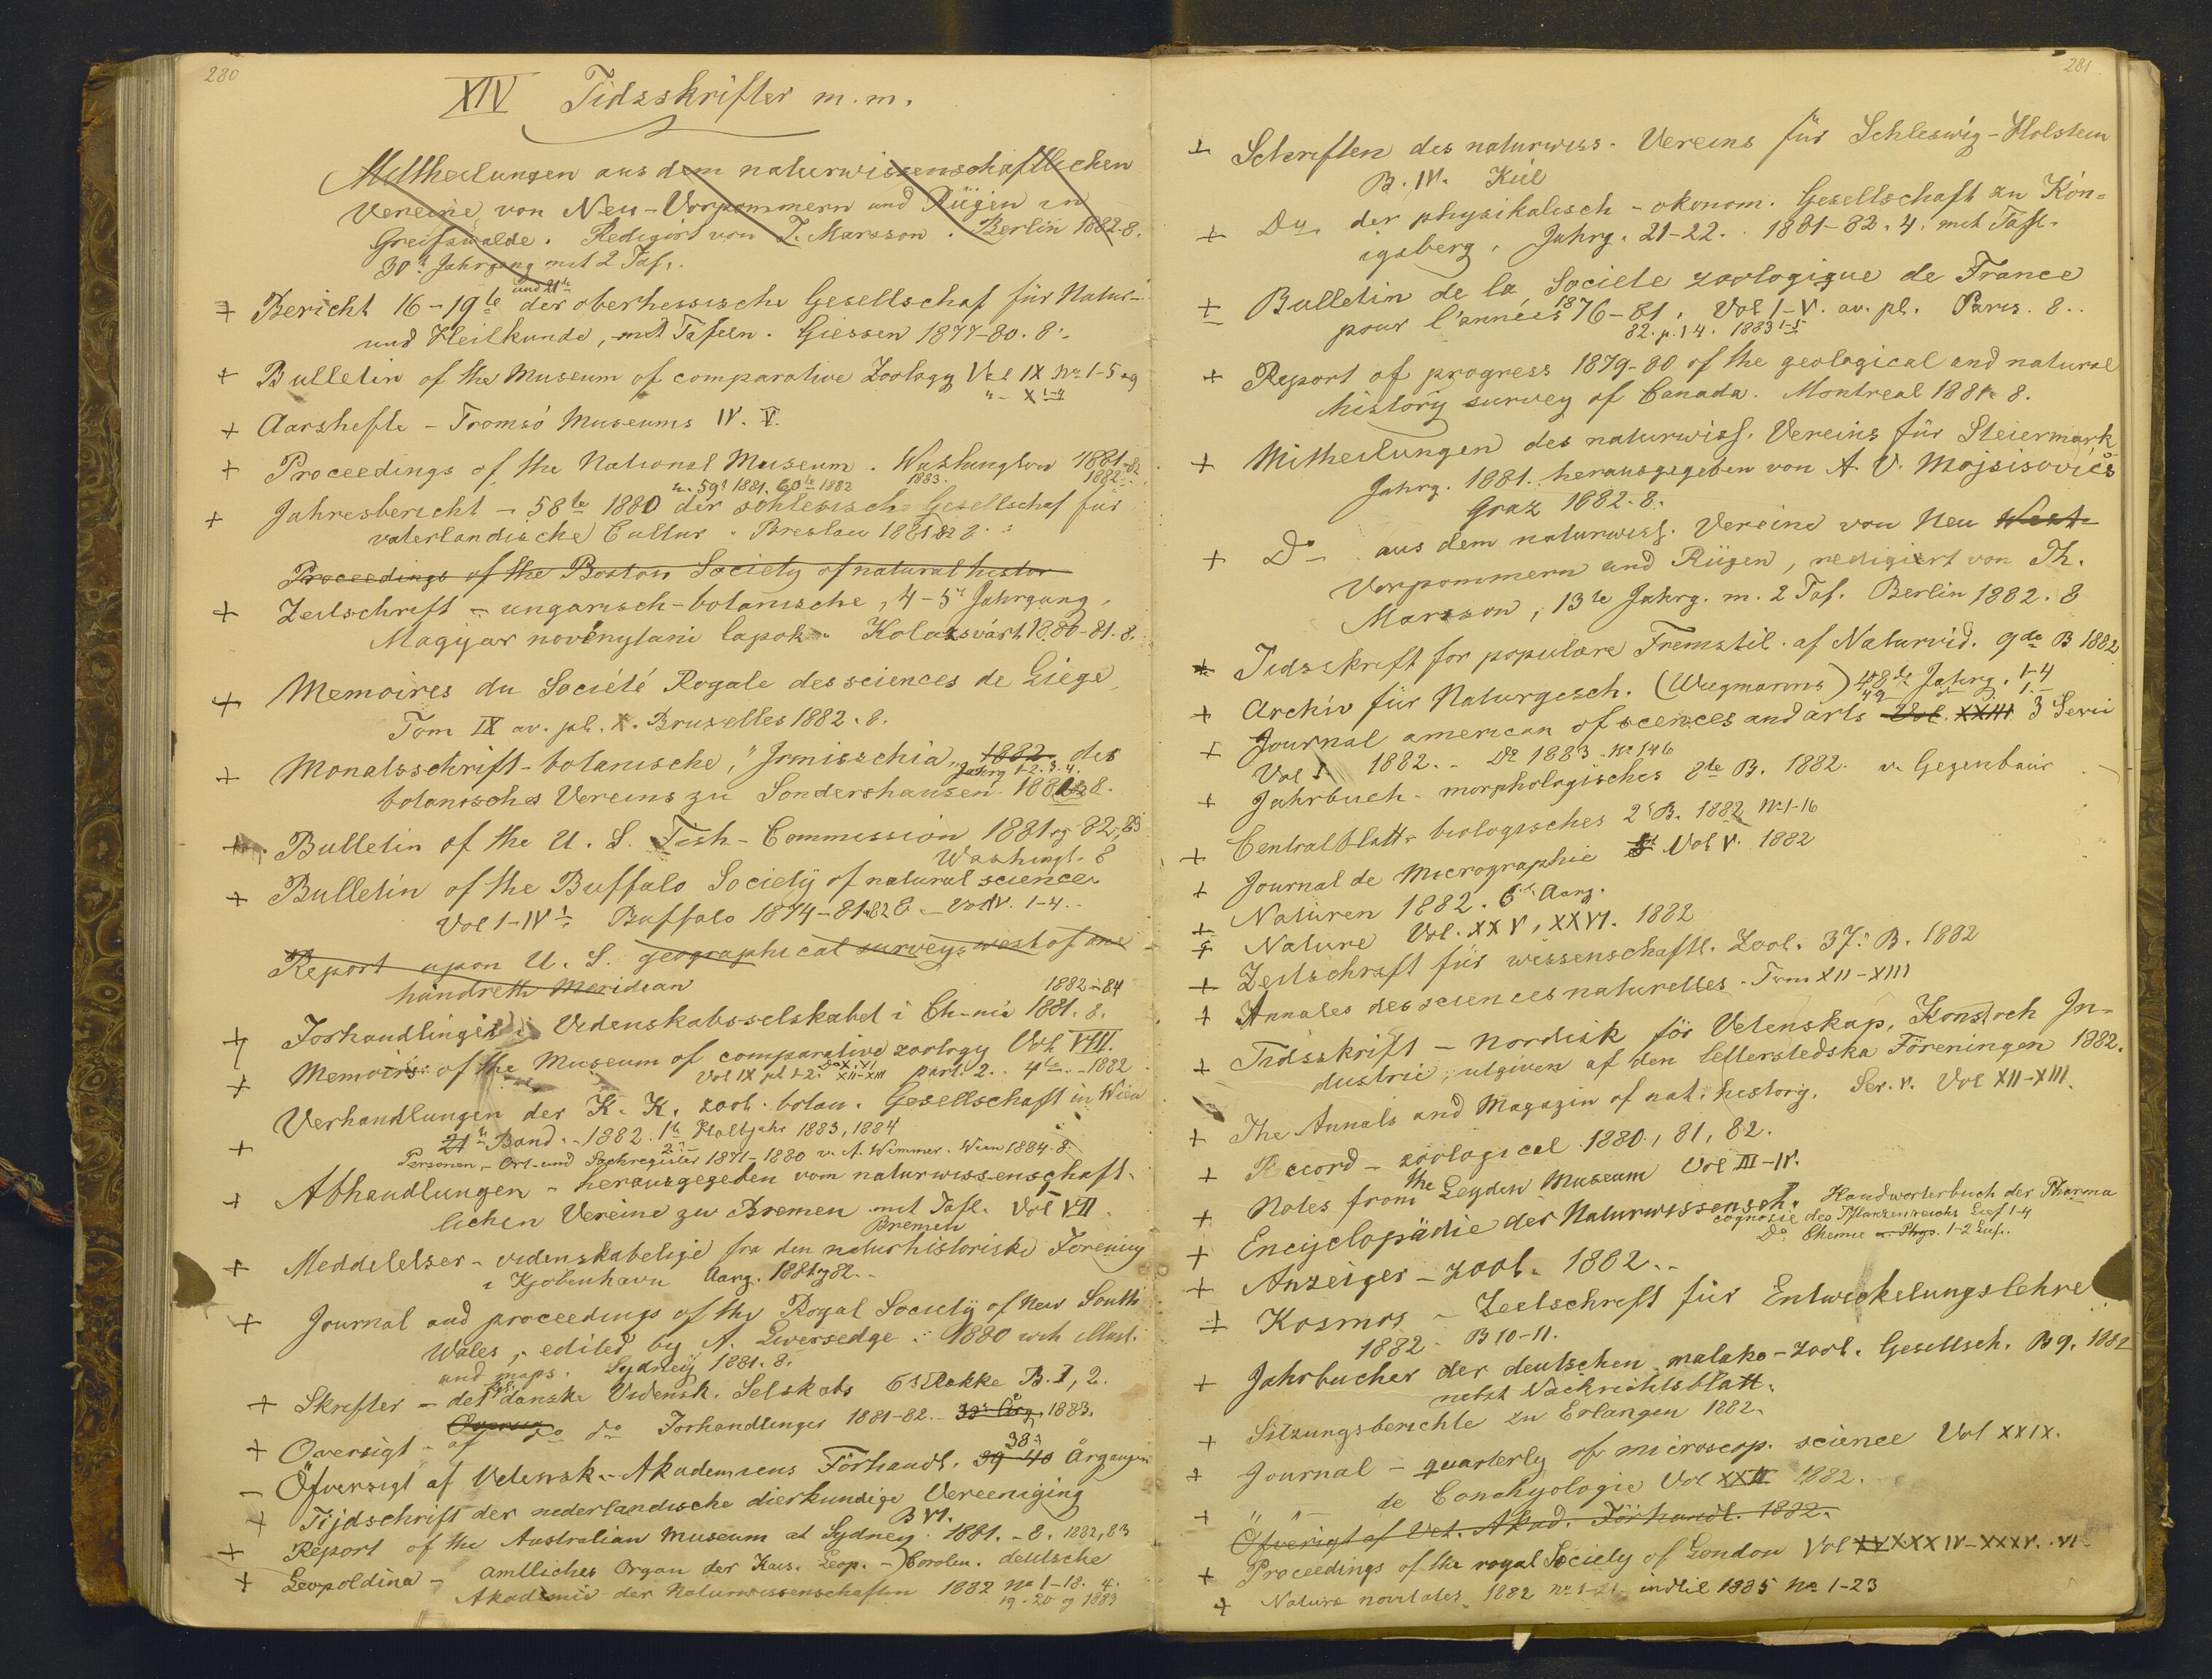 280
XIV Tidsskrifter m.m.
Mittheilungen aus dem naturwissenschaftlichen
Vereine von Neu-Vorpommern und Rügen in
Greifswalde. Redigirt von T. Marsson. Berlin 1882. 8.
30te Jahrgang mit 2 Taf.
und 21te
+ Bericht 16-19te der oberhessische Gesellschaf für Natur-
und Heilkunde, mit Tafeln. Giessen 1877-80. 8.
+ Bulletin of the Museum of comparative Zoology Vol IX No 1-5 og
" - X 1-4
+ Aarshefte - Tromsö Museums IV. V.
+ Proceedings of the National Museum. Washington 1881-82
1883. 1882
u. 59te 1881. 60te 1882
+ Jahresbericht - 58te 1880 der schlesische Gesellschaf für
vaterlandische Cultur. Breslau 1881 82 8.
Proceedings of the Boston Society of natural histor
+ Zeitschrift - ungarisch-botanische, 4-5te Jahrgang,
Magyar novénytani lapok. Kolozsvárt 1880-81. 8.
+ Memoires du Société Royale des sciences de Liége,
Tom IX av. pl. X. Bruxelles 1882. 8.
+ Monatsschrift - botanische, "Irmischia" 1882 des
Jahrg 1-2. 3. 4.
botanisches Vereins zu Sondershausen 1881 8.
+ Bulletin of the U. S. Fish-Commission 1881 og 82, 83
Washingt. 8
+ Bulletin of the Buffalo Society of natural sciences
Vol 1-IV 1. Buffalo 1874-81-82 8. - Vol IV. 1-4.
Report upon U. S. geographical surveys west of one
hundreth Meridian
1882-84
+ Forhandlinger i Videnskabsselskabet i Ch-nia 1881. 8.
+ Memoirs of the Museum of comparative zoology Vol VIII.
Vol IX pl 1-2. XII-XIII part. 2. 4to - 1882
+ Verhandlungen der K. K. zool. botan. Gesellschaft in Wien
21te Band. - 1882. 1te Halbjahr 1883, 1884
Personen-, Ort- und Sachregister 1871-1880 v. A. Wimmer. Wien 1884. 8.
+ Abhandlungen - herausgegeben vom naturwissenschaft-
lichen Vereine zu Bremen mit Tafl. Vol VII.
Bremen
+ Meddelelser - videnskabelige fra den naturhistoriske Forening
i Kjøbenhavn Aarg. 1881 og 82.
+ Journal and proceedings of the Royal Society of New South
Wales, edited by A. Liversedge. 1880 with illust.
and maps. Sydney 1881. 8.
+ Skrifter - det danske Vidensk. Selskabs 6te Række B. I, 2.
+ Oversigt - af do do Forhandlinger 1881-82. 1883.
38te
- Öfversigt af Vetensk.-Akademiens Förhandl. 39-40 Årgangen
+ Tijdschrift der nederlandsche dierkundige Vereeniging
B VI.
+ Report of the Australian Museum at Sydney. 1881. - 8. 1882, 83
+ Leopoldina - amtliches Organ der Kais. Leop. - Carolin. deutsche
Akademie der Naturwissenschaften 1882 No 1-18. 4.
19-20 og 1883
281
+ Schriften des naturwiss. Vereins für Schleswig-Holstein
B. IV. Kiel
+ Do der physikalisch-okonom. Gesellschaft zu Kön-
igsberg, Jahrg. 21-22. 1881-82. 4. mit Tafl.
+ Bulletin de la Societe zoologique de France
pour l'années 1876-81. Vol I-V. av. pl. Paris. 8.
82. p. 1-4. 1883 1-5
+ Report of progress 1879-80 of the geological and natural
history survey of Canada. Montreal 1881. 8.
+ Mitheilungen des naturwiss. Vereins für Steiermark
Jahrg. 1881. herausgegeben von A. V. Mojsisovićs
Graz 1882. 8.
+ Do - aus dem naturwiss. Vereine von Neu West
Vorpommern und Rügen, redigiert von Th.
Marsson, 13te Jahrg. m. 2 Taf. Berlin 1882. 8
+ Tidsskrift for populære Fremstil. af Naturvid. 9de B 1882
+ Archiv für Naturgesch. (Wiegmanns) 48de Jahrg. 1-4
49 1.
+ Journal american of scences and arts Vol. XXIII 3 Serie
Vol 1882. - Do 1883 - No 146
+ Jahrbuch - morphologisches 8de B. 1882. v. Gegenbaur
+ Centralblatt - biologisches 2te B. 1882 No 1-16
+ Journal de Micrographie Vol V. 1882
+ Naturen 1882. 6te Aarg.
+ Nature Vol. XXV, XXVI. 1882
+ Zeitschraft für wissenschaftl. Zool. 37te B. 1882
+ Annales des sciences naturelles. Tom XII-XIII
+ Tidsskrift - nordisk för Vetenskap, Konst och In-
dustrie, utgiven af den letterstedska Föreningen 1882.
+ The Annals and Magazin of nat. history. Ser. V. Vol XII-XIII.
+ Record - zoological 1880, 81, 82.
+ Notes from the Leyden Museum Vol III-IV.
+ Encyclopädie der Naturwissensch. Handworterbuch der Pharma
cognosie des Pflanzenreichs Lief 1-4
Do Chemie u. Phys. 1-2 Lief.
+ Anzeiger - zool. 1882.
+ Kosmos - Zeitschrift für Entwickelungslehre
1882 - B 10-11.
+ Jahrbucher der deutschen malako-zool. Gesellsch. B 9. 1882
nebst Nachrichtsblatt.
+ Sitzungsberichte zu Erlangen 1882.
+ Journal - quarterly of microscop. science Vol XXIX.
+ " " - de Conchyologie Vol XXII 1882.
Öfversigt af Vet. Akad. Förhandl. 1882.
+ Proceedings of the royal Society of London Vol XV XXXIV-XXXV. VI
+ Naturæ novitates. 1882 No 1-21 indtil 1885 No 1-23